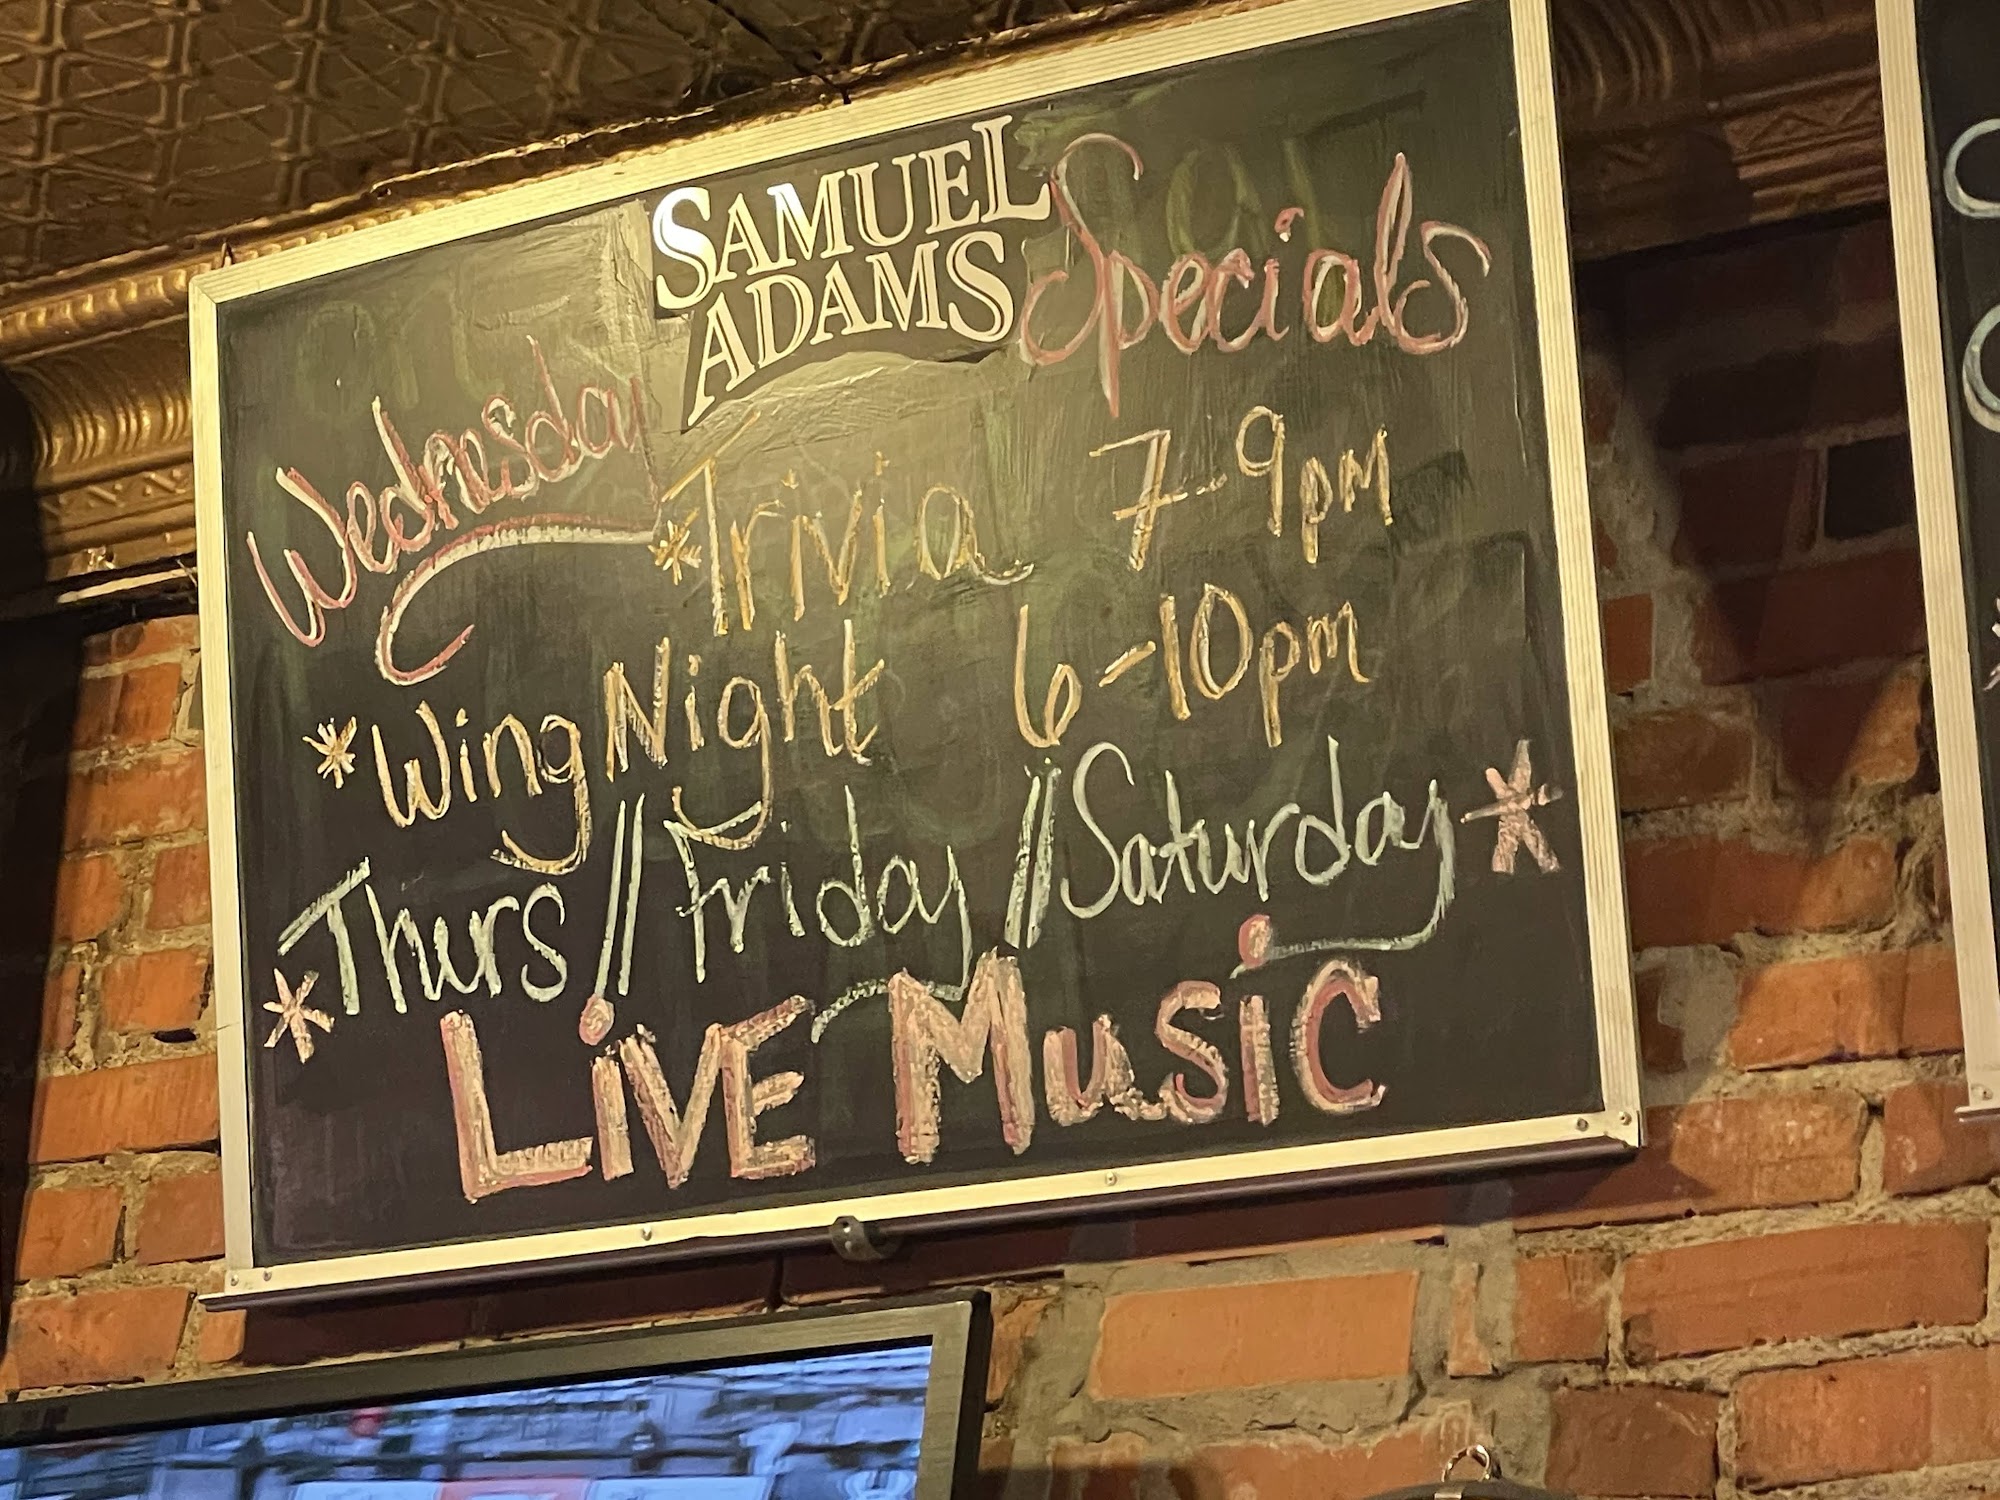 SAMUEL ADAMS Specials
Wednesday
*Trivia 7-9pm
*Wing Night 6-10pm
Thurs // Friday // Saturday *
* LiVE MusiC